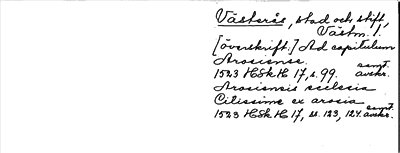 Västerås, stad och stift,
Västm. 1.
[överskrift.] Ad capitulum
Arosiense.
1523 HSkH 17, s. 99. samt. avskr.
Arosiensis ecclesia
Citissime ex arosia
1523 HSkH 17, ss. 123, 124. samt. avskr.